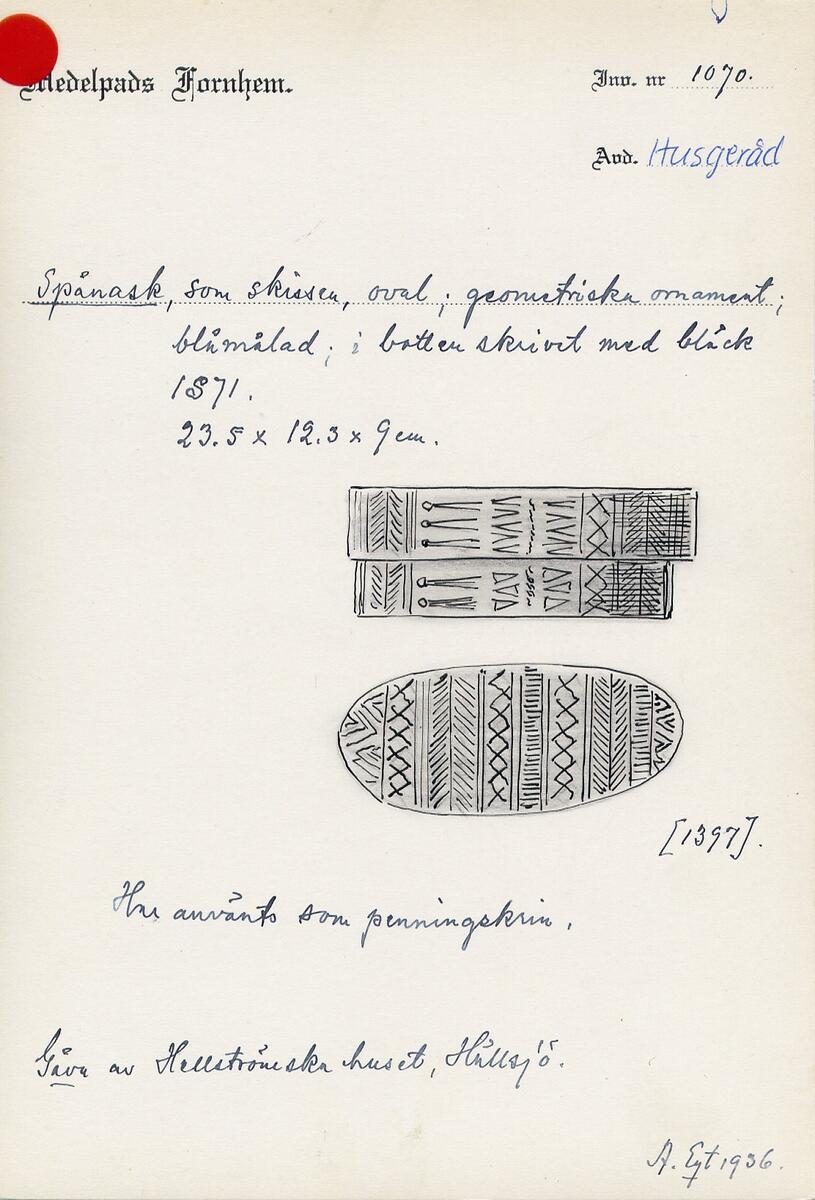 Medelpads Fornhem.
Inv. nr 1070.
Avd. Husgeråd
Spånask, som skissen, oval; geometriska ornament;
blåmålad; i botten skrivet med bläck
1871.
23.5 x 12.3 x 9 cm.
[1397].
Har använts som penningskrin.
Gåva av Hellströmska huset, Hällsjö.
A. Eyt 1936.